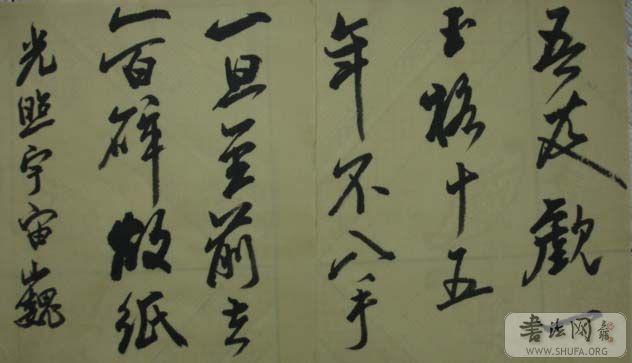 吾友觀一
玉格十五
年不入手
一旦至前去
一百碎故紙
光照宇宙巍
書法网
WWW.SHUFA.ORG